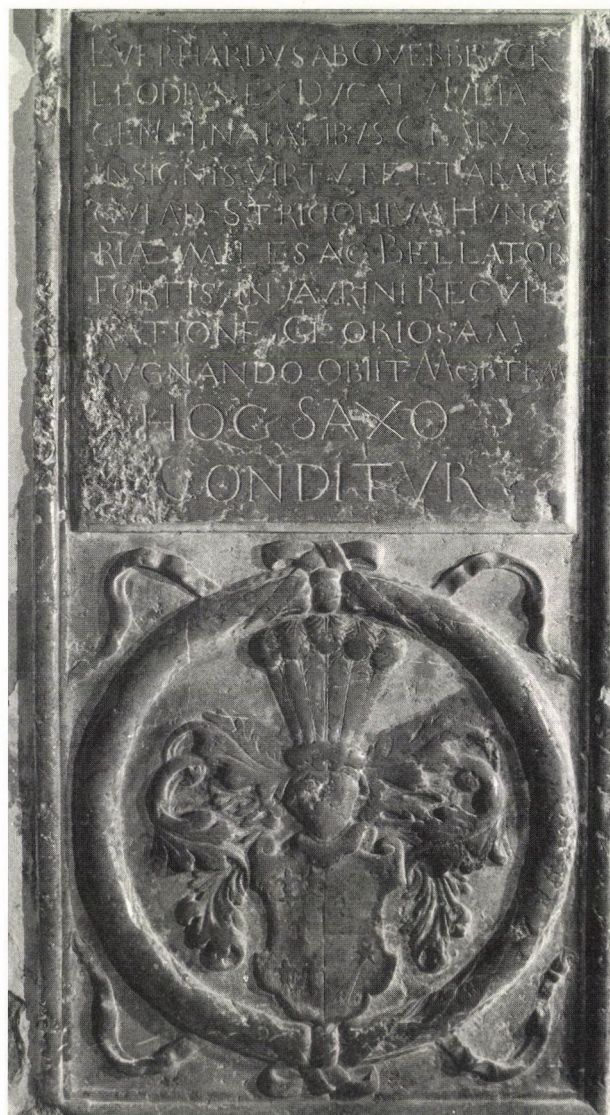 EVERHARDVS AB OVERBRVCK
LEODIVM EX DVCATV IVLIA
GENTE NATALIBVS CLARVS
INSIGNIS VIRTVTE ET ARMIS
QVI AD STRIGONIVM HVNGA
RIÆ MILES AC BELLATOR
FORTIS IN JAVRINI RECVPE
RATIONE GLORIOSAM
PVGNANDO OBIIT MORTEM
HOC SAXO
CONDITVR